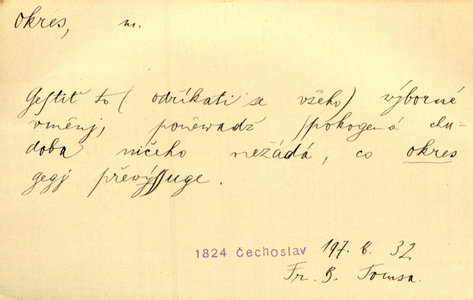 okres, m.
Gestiť to (odříkati se všeho) výborné
uměnj, poněwadž spokogená chu-
doba ničeho nežádá, co okres
gegj převyssuge.
1824 Čechoslav 197. b. 32
Fr. B. Tomsa.